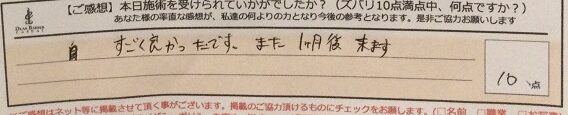 【ご感想】本日施術を受けられていかがでしたか？（ズバリ10点満点中、何点ですか？）
あなた様の率直な感想が、私達の何よりの力となり今後の参考となります。是非ご協力お願いします
すごく良かったです。また 1ヶ月後 来ます
10 点
ご感想はネット等に掲載させて頂く事がございます。掲載のご協力頂けるものにチェックをお願します。（□名前 □職業 □お写真